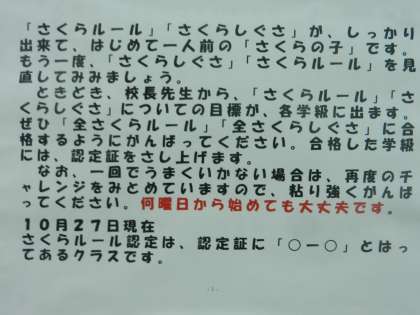 「さくらルール」「さくらしぐさ」が、しっかり
出来て、はじめて一人前の「さくらの子」です。
もう一度、「さくらしぐさ」「さくらルール」を見
直してみみましょう。
ときどき、校長先生から、「さくらルール」「さ
くらしぐさ」についての目標が、各学級に出ます。
ぜひ「全さくらルール」「全さくらしぐさ」に合
格するようにがんばってください。合格した学級
には、認定証をさし上げます。
なお、一回でうまくいかない場合は、再度のチ
ャレンジをみとめていますので、粘り強くがんば
ってください。何曜日から始めても大丈夫です。
１０月２７日現在
さくらルール認定は、認定証に「○－○」とはっ
てあるクラスです。